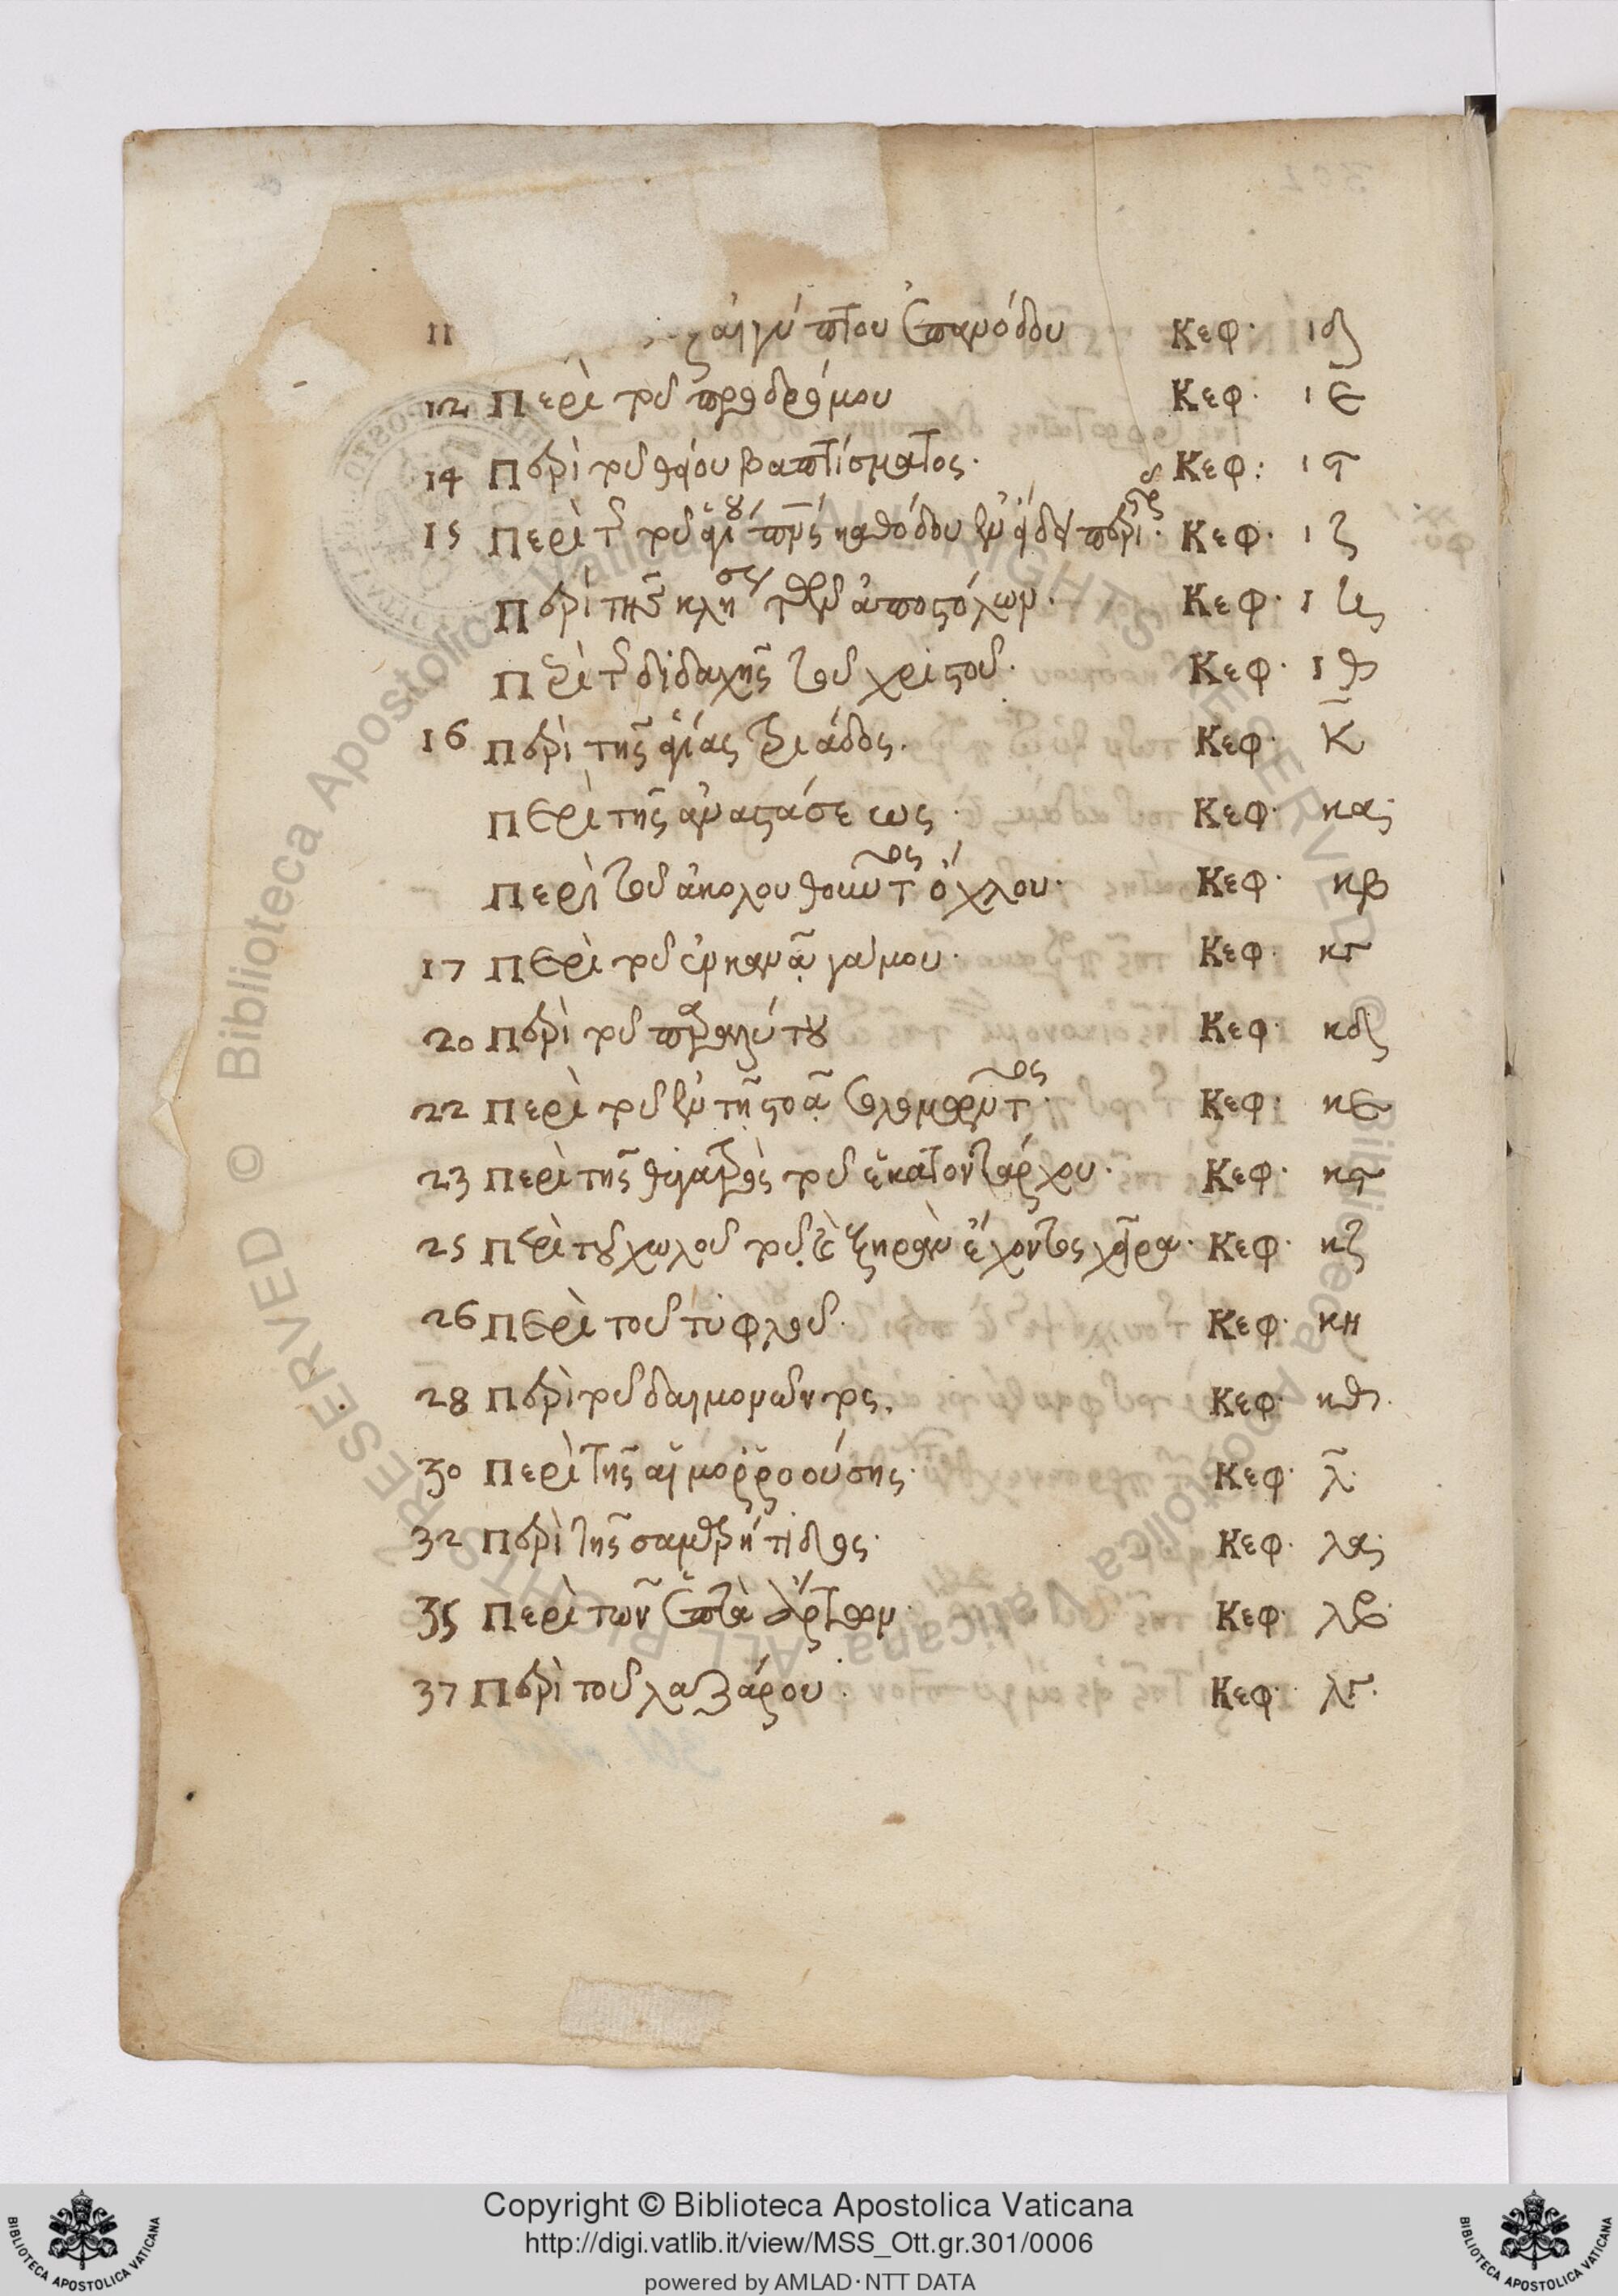 11 ἐξ αἰγύπτου ἐπανόδου Κεφ. ιδ
12 Περὶ τοῦ προδρόμου Κεφ. ιε
14 Περὶ τοῦ θείου βαπτίσματος. Κεφ: ις
15 Περὶ τῆς τοῦ ἁγίου πνς καθόδου ἐν εἴδει περιστερᾶς. Κεφ. ιζ
Περὶ τῆς κλήσεως τῶν ἀποστόλων. Κεφ. ιη
Περὶ τῆς διδαχῆς τοῦ χριστοῦ. Κεφ. ιθ
16 Περὶ τῆς ἁγίας τριάδος. Κεφ. κ
Περὶ τῆς ἀναστάσεως. Κεφ. κα
Περὶ τοῦ ἀκολουθοῦντος ὄχλου. Κεφ. κβ
17 Περὶ τοῦ ἐν κανᾷ γάμου. Κεφ. κγ
20 Περὶ τοῦ παραλύτου Κεφ. κδ
22 Περὶ τοῦ ἐν τῇ στοᾷ Κεφ. κε
23 Περὶ τῆς θυγατρὸς τοῦ ἑκατοντάρχου. Κεφ. κς
25 Περὶ τοῦ χωλοῦ τοῦ ξηρὰν ἔχοντος χεῖρα. Κεφ. κζ
26 Περὶ τοῦ τυφλοῦ. Κεφ. κη
28 Περὶ τοῦ δαιμονῶντος. Κεφ. κθ.
30 Περὶ τῆς αἱμορροούσης. Κεφ. λ.
32 Περὶ τῆς σαμαρείτιδος. Κεφ. λα
35 Περὶ τῶν ἑπτὰ ἄρτων. Κεφ. λβ
37 Περὶ τοῦ λαζάρου. Κεφ. λγ.
Biblioteca Apostolica Vaticana ALL RIGHTS RESERVED ©
BIBLIOTECA APOSTOLICA VATICANA
Copyright © Biblioteca Apostolica Vaticana
http://digi.vatlib.it/view/MSS_Ott.gr.301/0006
powered by AMLAD·NTT DATA
BIBLIOTECA APOSTOLICA VATICANA